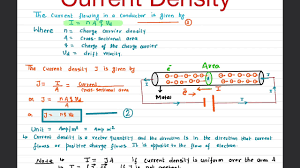 Current Density
The Current flowing in a Conductor is given by
I = n A q Vd ①
Where n = Charge carrier density
A = Cross-Sectional area
q = Charge of the charge carrier
Vd = drift velocity
The Current density J is given by
J = I/A = Current / Cross-Sectional area
Area
E
I
or J = n A q Vd / A
Metre
or J = n q Vd ②
Unit = Amp/m²
Current density is a vector quantity and the direction is in the direction that current
flows or positive charge flows. It is opposite to the flow of electron
Note I = JA if current density is uniform over the area A